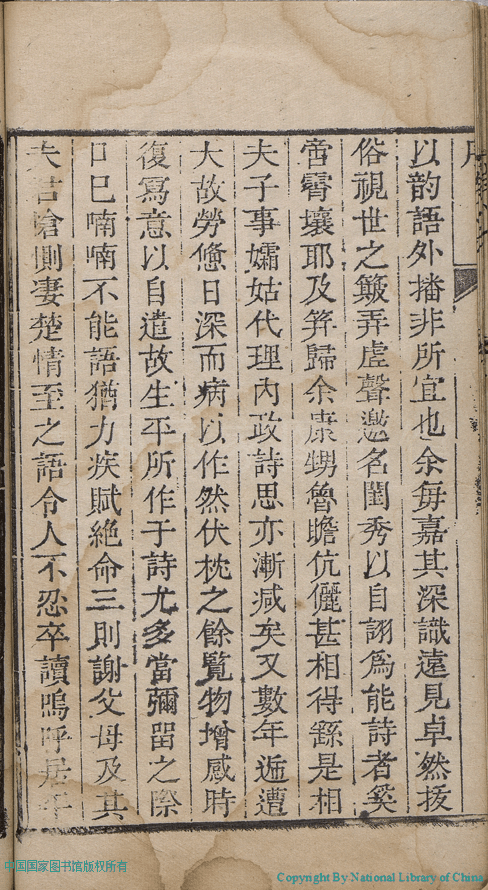 以韵語外播非所宜也余每嘉其深識遠見卓然拔
俗視世之簸弄虛聲邀名閨秀以自詡為能詩者奚
啻霄壤耶及笄歸余康甥魯瞻伉儷甚相得繇是相
夫子事孀姑代理內政詩思亦漸減矣又數年遞遭
大故勞憊日深而病以作然伏枕之餘覽物增感時
復寫意以自遣故生平所作于詩尤多當彌留之際
口已喃喃不能語猶力疾賦絕命三則謝父母及其
夫君愴惻凄楚情至之語令人不忍卒讀嗚呼
中国国家图书馆版权所有
Copyright By National Library of China